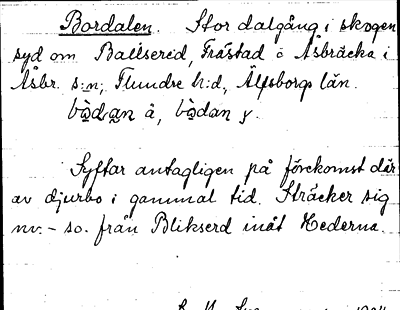 Bordalen. Stor dalgång i skogen
syd om Ballsered, Fråstad o Åsbräcka i
Åsbr. s:n, Flundre h:d, Älfsborgs län.
bòdan å, bòdan y.
Syftar antagligen på förekomst där
av djurbo i gammal tid. Sträcker sig
nv. - so. från Blikserd inåt Hederna.